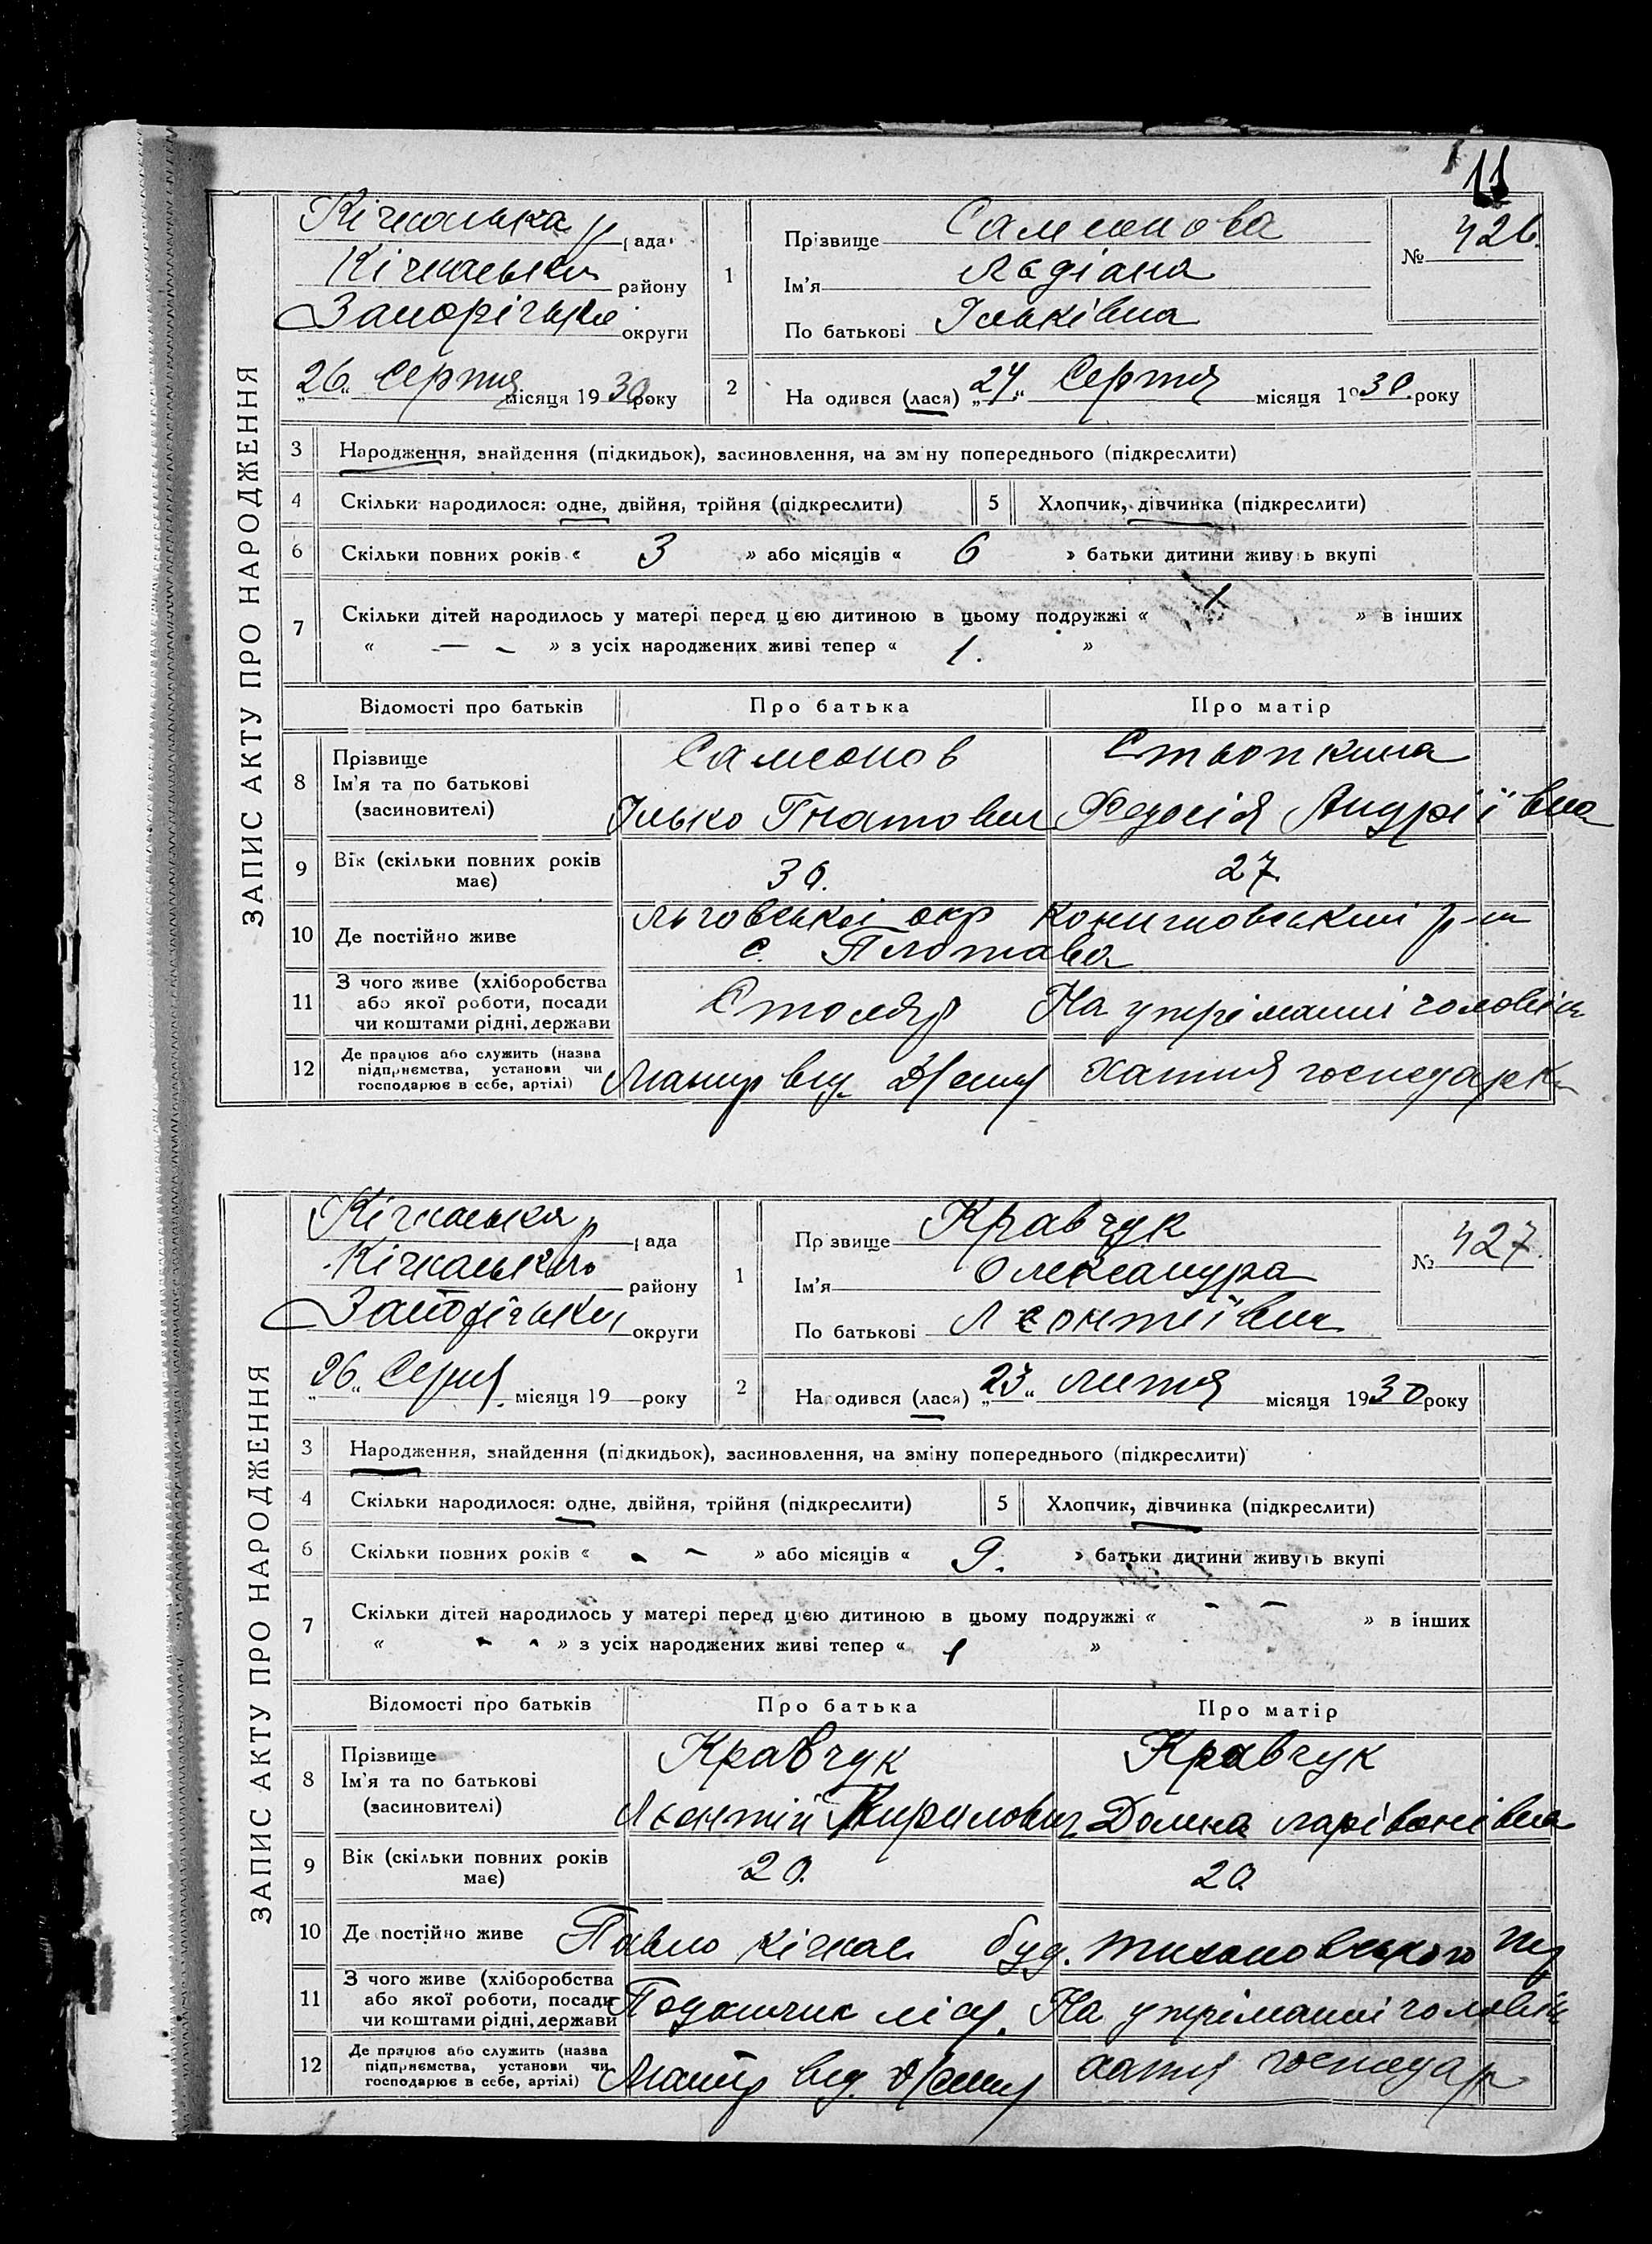 11
ЗАПИС АКТУ ПРО НАРОДЖЕННЯ
Кічкаська рада
Кічкаськ району
Запорізька округи
„26“ Серпня місяця 1930 року
1
Прізвище Самсонова
Ім'я Лєдіана
По батькові Ільківна
№ 426.
2
На одився (лася) „24“ Серпня місяця 1930 року
3 Народження, знайдення (підкидьок), засиновлення, на зм ну попереднього (підкреслити)
4 Скільки народилося: одне, двійня, трійня (підкреслити) 5 Хлопчик, дівчинка (підкреслити)
6 Скільки повних років « 3 » або місяців « 6 » батьки дитини живу ь вкупі
7 Скільки дітей народилось у матері перед цією дитиною в цьому подружжі « 1 » в інших
« — - » з усіх народжених живі тепер « 1. »
Відомості про батьків Про батька Про матір
8 Прізвище
Ім'я та по батькові
(засиновителі)
Самсонов
Ілько Гнатович
Стьопкина
Федосія Андріївна
9 Вік (скільки повних років
має)
30. 27
10 Де постійно живе
Льговської окр Конишовський р-н
с. Плотава
11 З чого живе (хліборобства
або якої роботи, посади
чи коштами рідні, держави
Столяр На утріманні чоловік
12 Де працює або служить (назва
підприємства, установи чи
господарює в себе, артілі)
хатня господарк
ЗАПИС АКТУ ПРО НАРОДЖЕННЯ
Кічкаська рада
Кічкаського району
Запорізька округи
„26“ Серпня місяця 19 року
1
Пр звище Кравчук
Ім'я Олександра
По батькові Леонтіївна
№ 427.
2
На одився (лася) „23“ лютня місяця 1930 року
3 Народження, знайдення (підкидьок), засиновлення, на зміну попереднього (підкреслити)
4 Скільки народилося: одне, двійня, трійня (підкреслити) 5 Хлопчик, дівчинка (підкреслити)
6 Скільки повних років « - - » або місяців « 9. » батьки дитини живуть вкупі
7 Скільки дітей народилось у матері перед цією дитиною в цьому подружжі « - - » в інших
« - - » з усіх народжених живі тепер « 1 »
Відомості про батьків Про батька Про матір
8 Прізвище
Ім'я та по батькові
(засиновителі)
Кравчук
Лєонтій Кирилович
Кравчук
Домна Ларівонівна
9 Вік (скільки повних років
має)
20. 20
10 Де постійно живе
Павло Кічкас буд. Тихоновського
11 З чого живе (хліборобства
або якої роботи, посади
чи коштами рідні, держави
лісу. На утріманні чоловік
12 Де працює або служить (назва
підприємства, установи чи
господарює в себе, артілі)
хатня господар